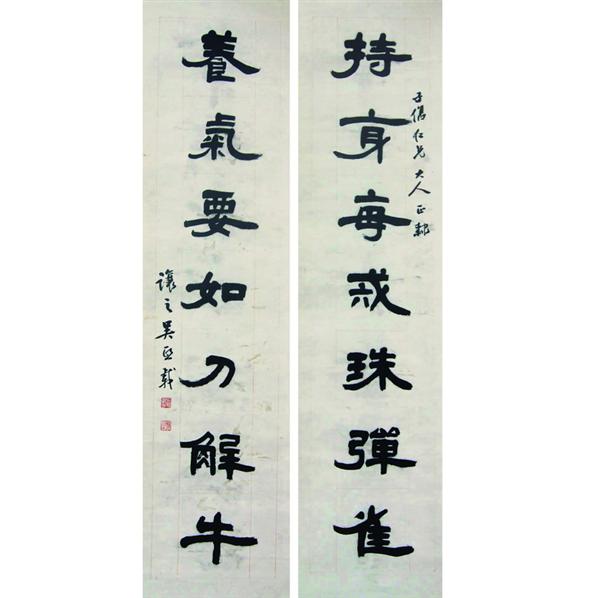 子仁兄大人正隸
持身每戒珠彈雀
養氣要如刀解牛
讓之吳熙載